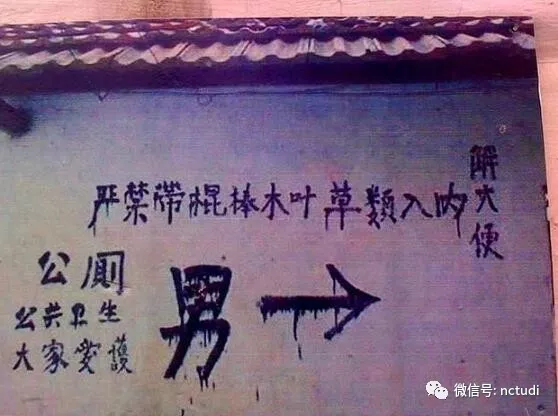 严禁带棍棒木叶草類入内
解大便
公厕
公共卫生
大家爱護
男
微信号: nctudi